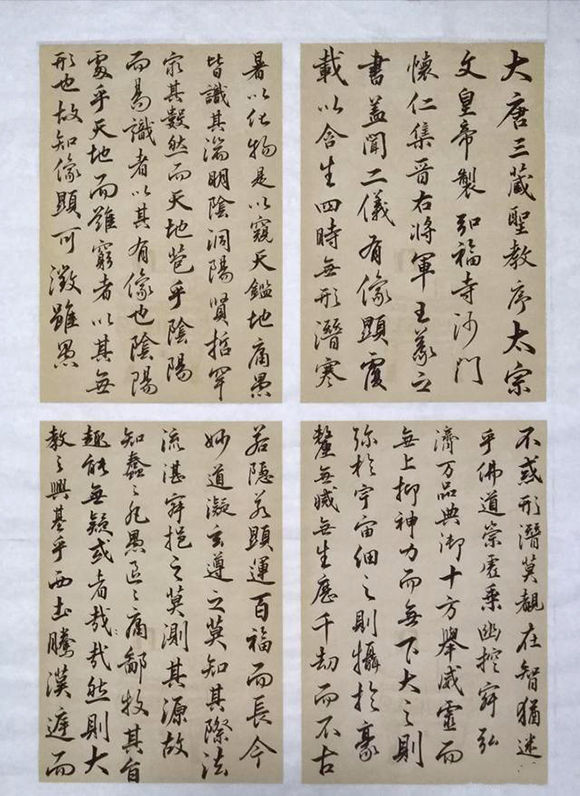 大唐三藏聖教序太宗
文皇帝製弘福寺沙門
懷仁集晉右將軍王羲之
書蓋聞二儀有像顯覆
載以含生四時無形潛寒
暑以化物是以窺天鑑地庸愚
皆識其端明陰洞陽賢哲罕
窮其數然而天地苞乎陰陽
而易識者以其有像也陰陽
處乎天地而難窮者以其無
形也故知像顯可徵雖愚
不或形潛莫覩在智猶迷
乎佛道崇虛乘幽控寂弘
濟万品典御十方舉威靈而
無上抑神力而無下大之則
弥於宇宙細之則攝於豪
釐無滅無生歷千劫而不古
若隱若顯運百福而長今
妙道凝玄遵之莫知其際法
流湛寂挹之莫測其源故
知蠢々凡愚區々庸鄙投其旨
趣能無疑或者哉哉然則大
教之興基乎西土騰漢庭而